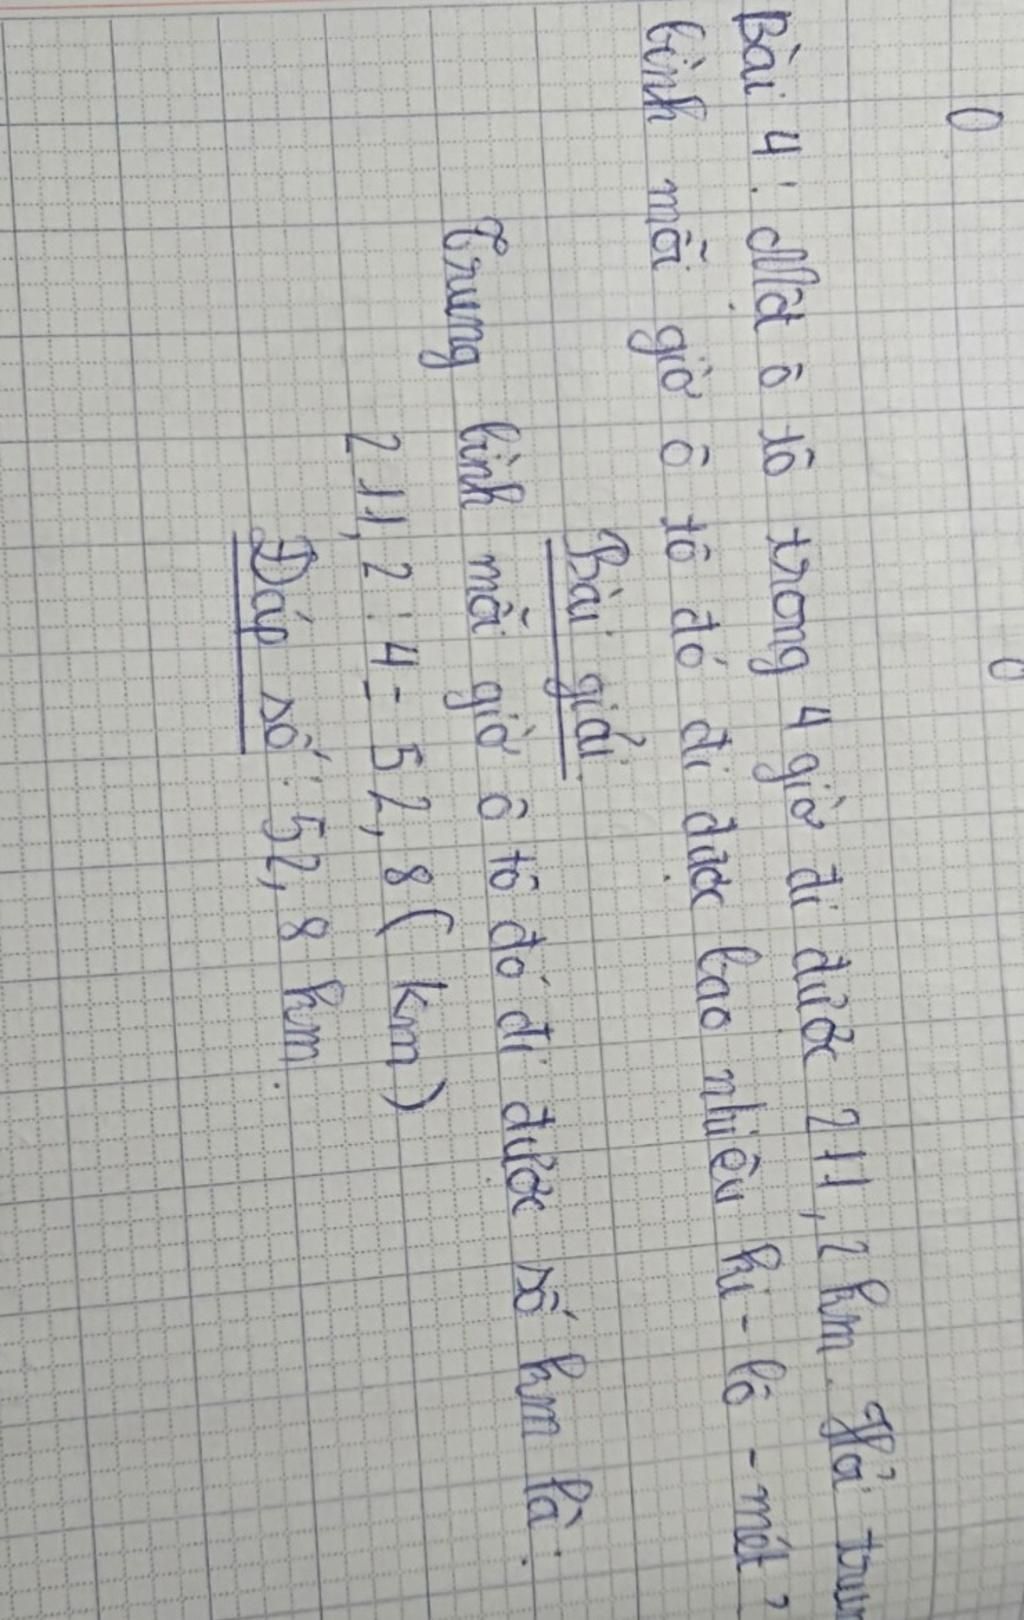 Bài 4: Một ô tô trong 4 giờ đi được 211,2 km. Hỏi trun
bình mỗi giờ ô tô đó đi được bao nhiêu ki-lô-mét?
Bài giải
Trung bình mỗi giờ ô tô đó đi được số km là:
211,2 : 4 = 52,8 (km)
Đáp số: 52,8 km.